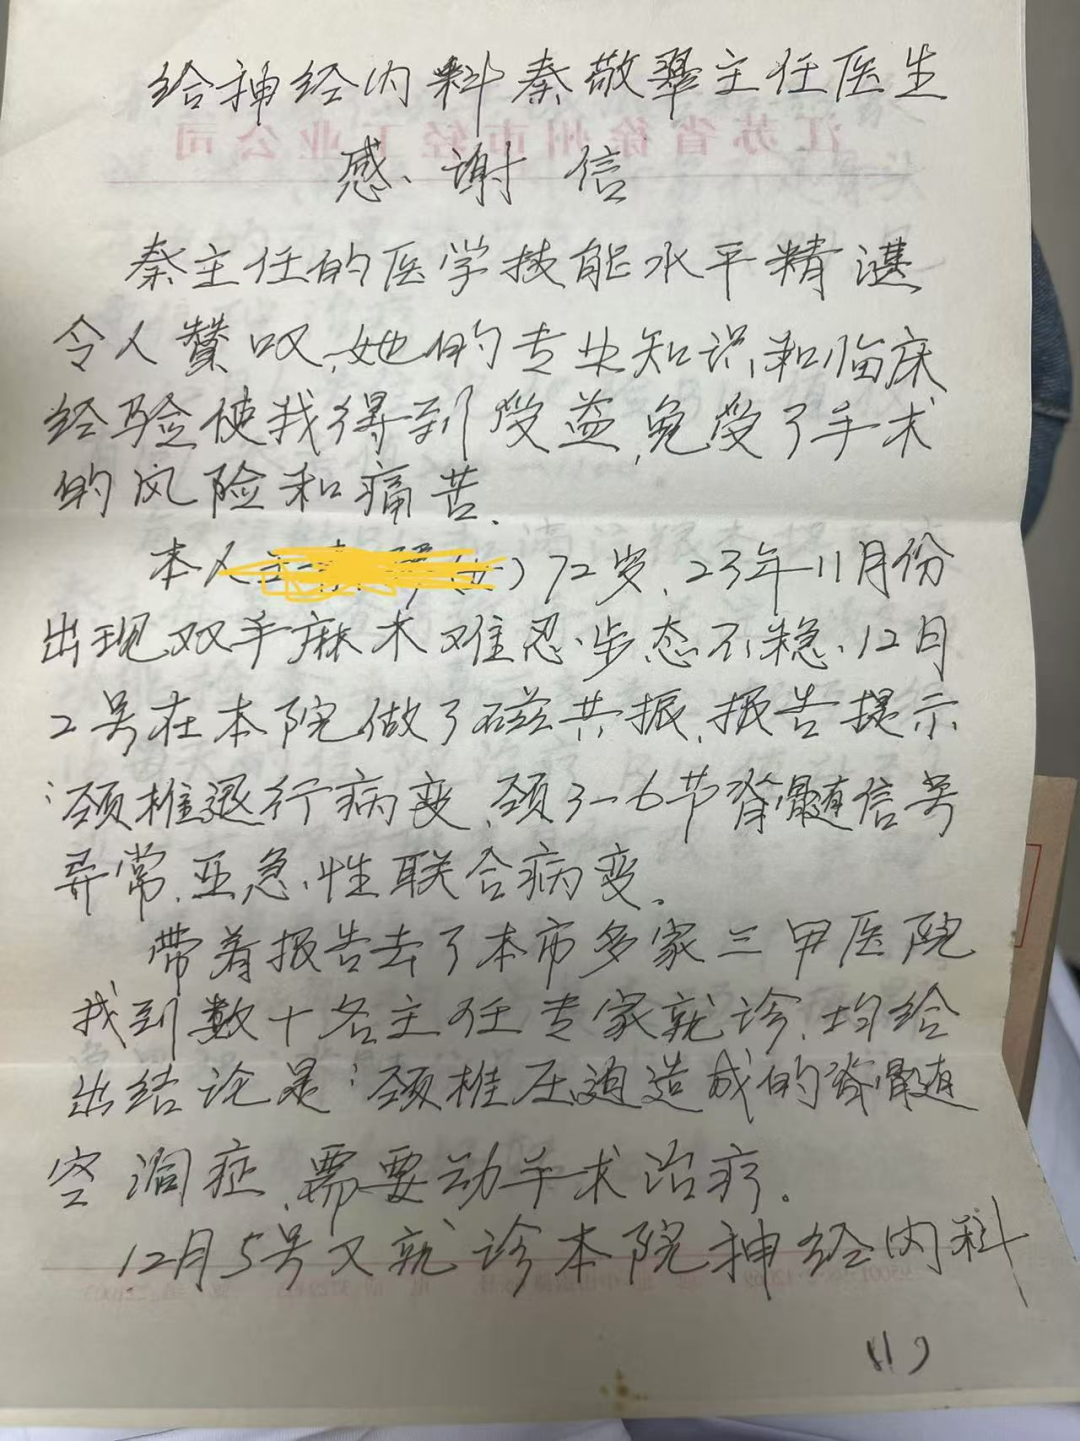 给神经内科秦敬翠主任医生
江苏省徐州市轻工业公司
感谢信
秦主任的医学技能水平精湛
令人赞叹、她的专业知识和临床
经验使我得到受益,免受了手术
的风险和痛苦.
本人(女)72岁、23年11月份
出现双手麻木难忍、步态不稳、12月
2号在本院做了磁共振、报告提示
:颈椎退行病变、颈3-6节脊髓信号
异常、亚急性联合病变。
带着报告去了本市多家三甲医院
找到数十名主任专家就诊、均给
出结论是:颈椎压迫造成的脊髓
空洞症、需要动手术治疗。
12月5号又就诊本院神经内科
(1)